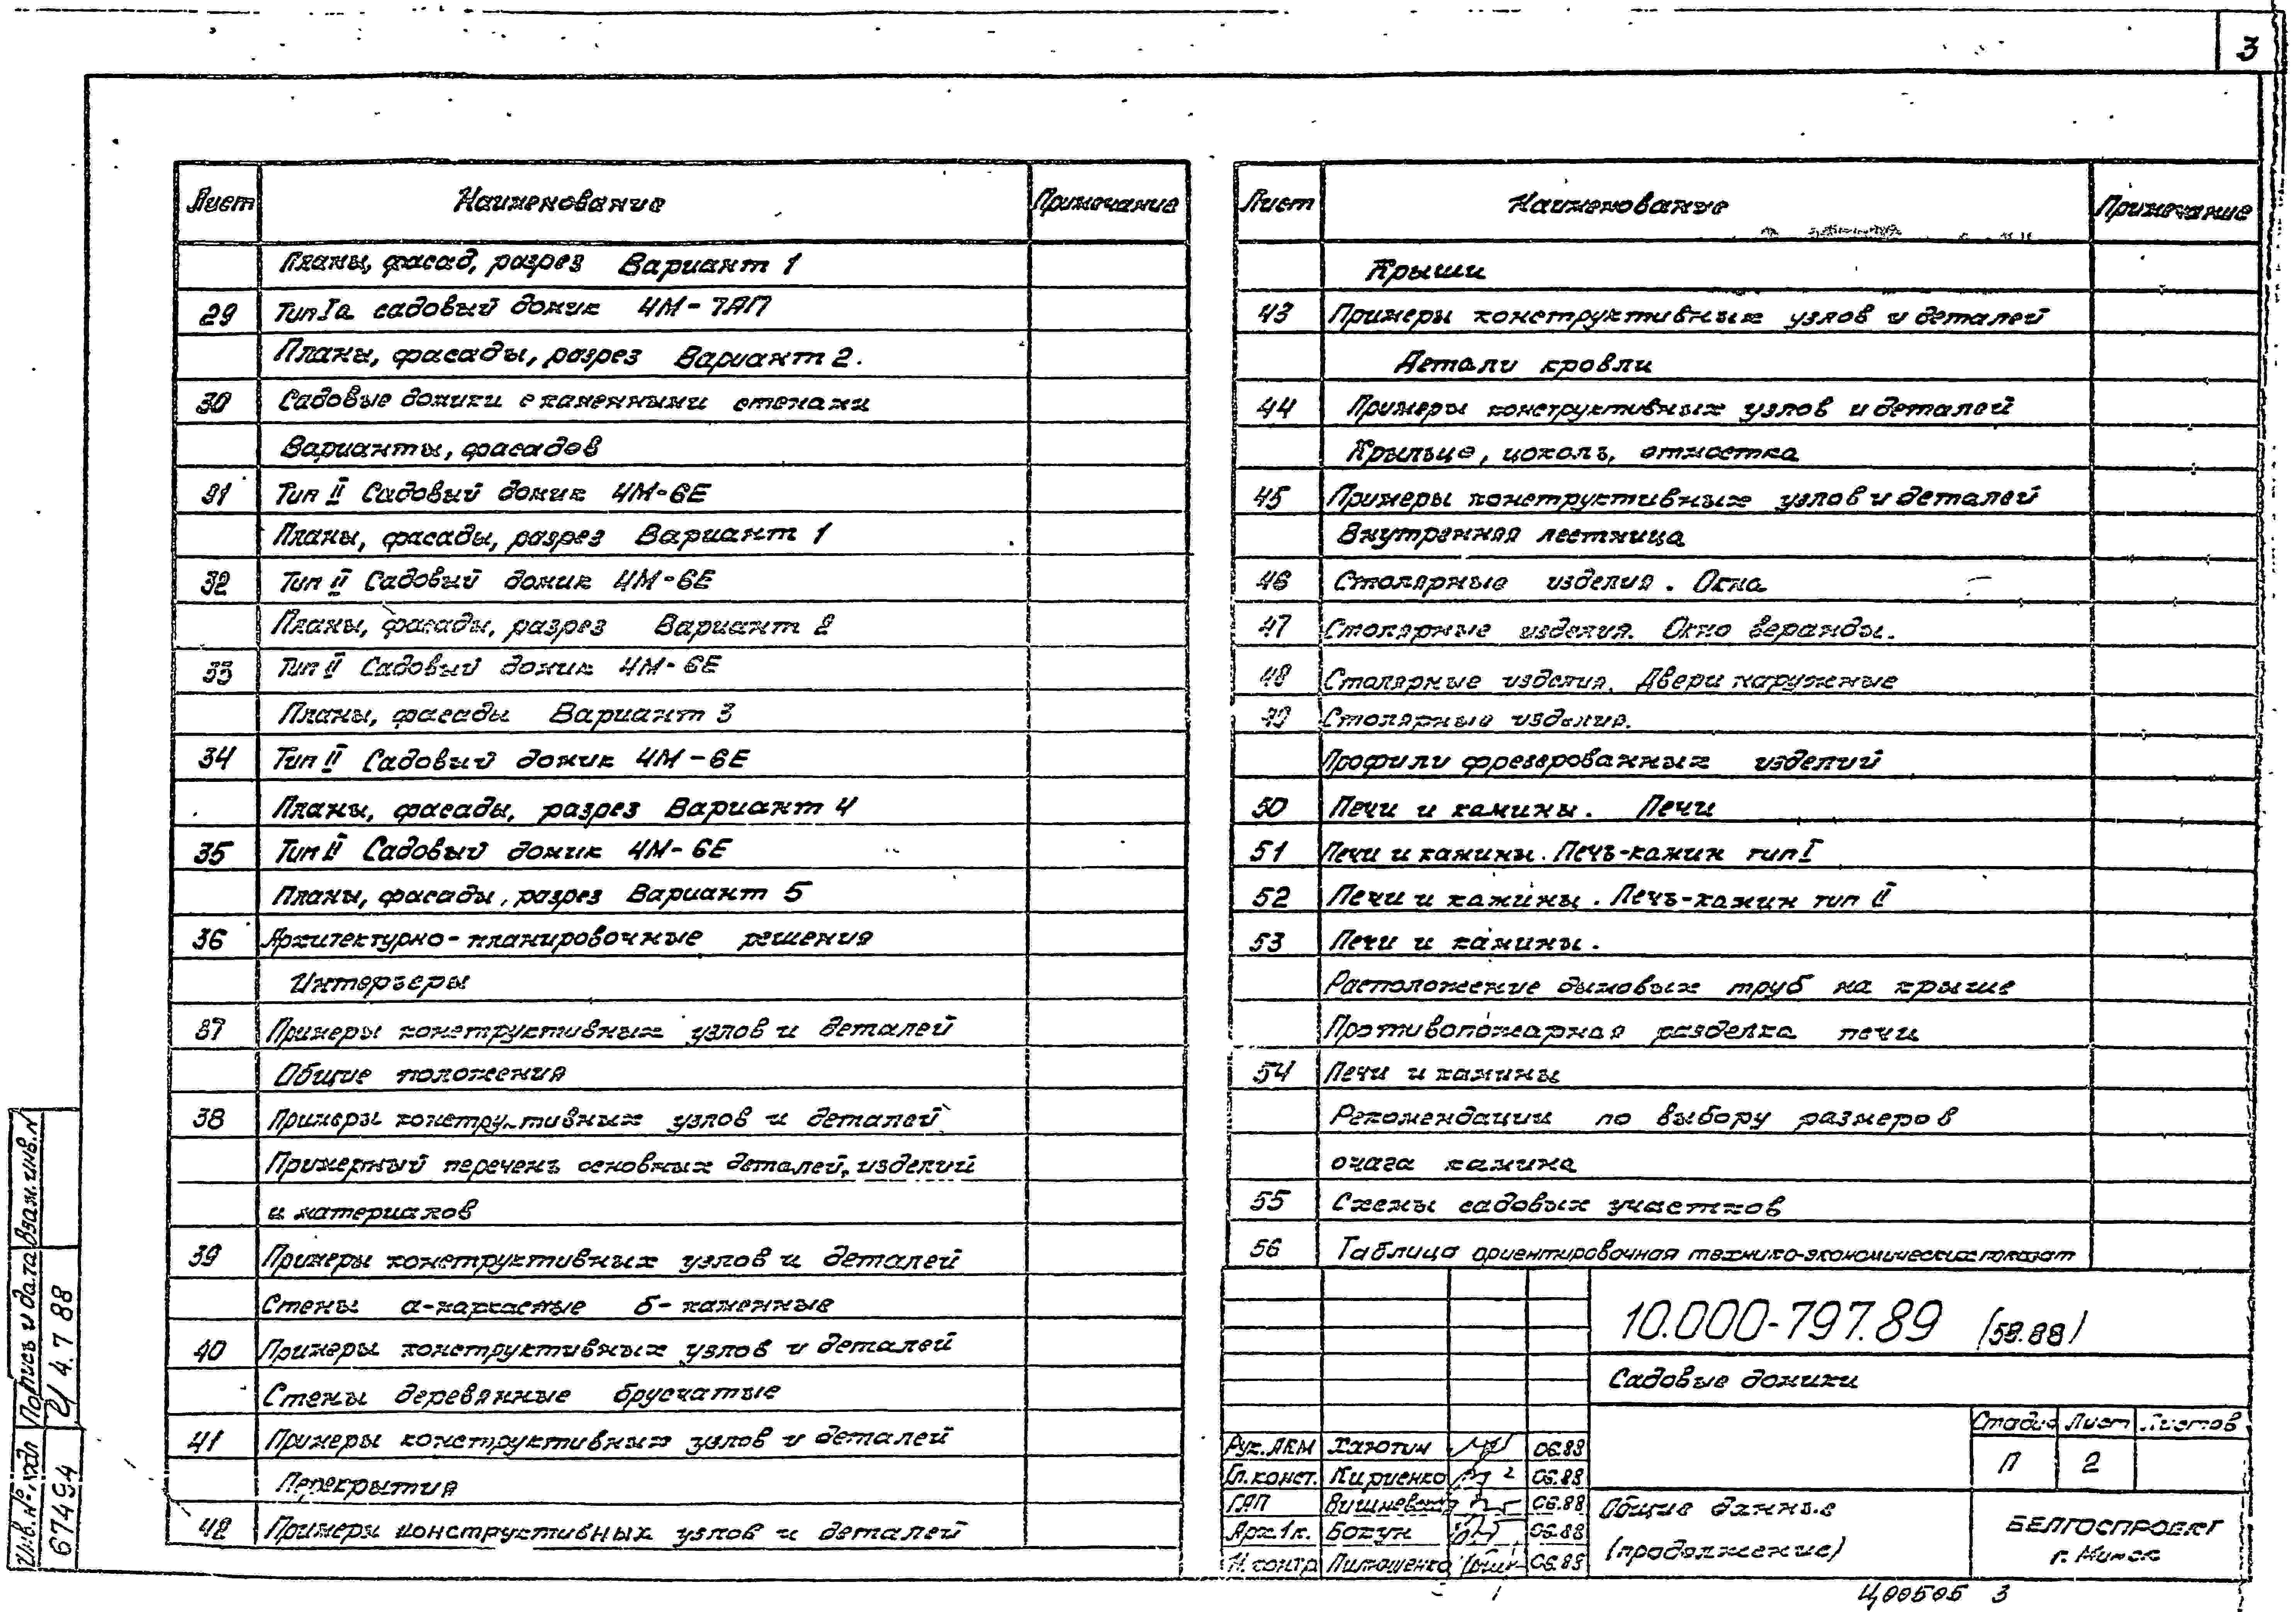 3
Лист Наименование Примечание
Планы, фасад, разрез Вариант 1
29 Тип Iа садовый домик 4М-7АП
Планы, фасады, разрез Вариант 2.
30 Садовые домики с каменными стенами
Варианты, фасадов
31 Тип II Садовый домик 4М-6Е
Планы, фасады, разрез Вариант 1
32 Тип II Садовый домик 4М-6Е
Планы, фасады, разрез Вариант 2
33 Тип II Садовый домик 4М-6Е
Планы, фасады Вариант 3
34 Тип II Садовый домик 4М-6Е
Планы, фасады, разрез Вариант 4
35 Тип II Садовый домик 4М-6Е
Планы, фасады, разрез Вариант 5
36 Архитектурно-планировочные решения
Интерьеры
37 Примеры конструктивных узлов и деталей
Общие положения
38 Примеры конструктивных узлов и деталей
Примерный перечень основных деталей, изделий
и материалов
39 Примеры конструктивных узлов и деталей
Стены а-каркасные б-каменные
40 Примеры конструктивных узлов и деталей
Стены деревянные брусчатые
41 Примеры конструктивных узлов и деталей
Перекрытия
42 Примеры конструктивных узлов и деталей
Лист Наименование Примечание
Крыши
43 Примеры конструктивных узлов и деталей
Детали кровли
44 Примеры конструктивных узлов и деталей
Крыльцо, цоколь, отмостка
45 Примеры конструктивных узлов и деталей
Внутренняя лестница
46 Столярные изделия. Окна
47 Столярные изделия. Окно веранды.
48 Столярные изделия. Двери наружные
49 Столярные изделия.
Профили фрезерованных изделий
50 Печи и камины. Печи
51 Печи и камины. Печь-камин тип I
52 Печи и камины. Печь-камин тип II
53 Печи и камины.
Расположение дымовых труб на крыше
Противопожарная разделка печи
54 Печи и камины
Рекомендации по выбору размеров
очага камина
55 Схемы садовых участков
56 Таблица ориентировочная технико-экономических показат
10.000-797.89 (58.88)
Садовые домики
Стадия Лист Листов
П 2
Рук. АКМ Хаютин 06.88
Гл. конст. Кириенко 06.88
ГАП Вишневская 06.88
Арх. 1к. Бокун 06.88
Н. контр 06.88
Общие данные
(продолжение)
БЕЛГОСПРОЕКТ
г. Минск
Ц00505 3
Взам. инв. №
Подпись и дата 4.7 88
Инв. № подл 67494